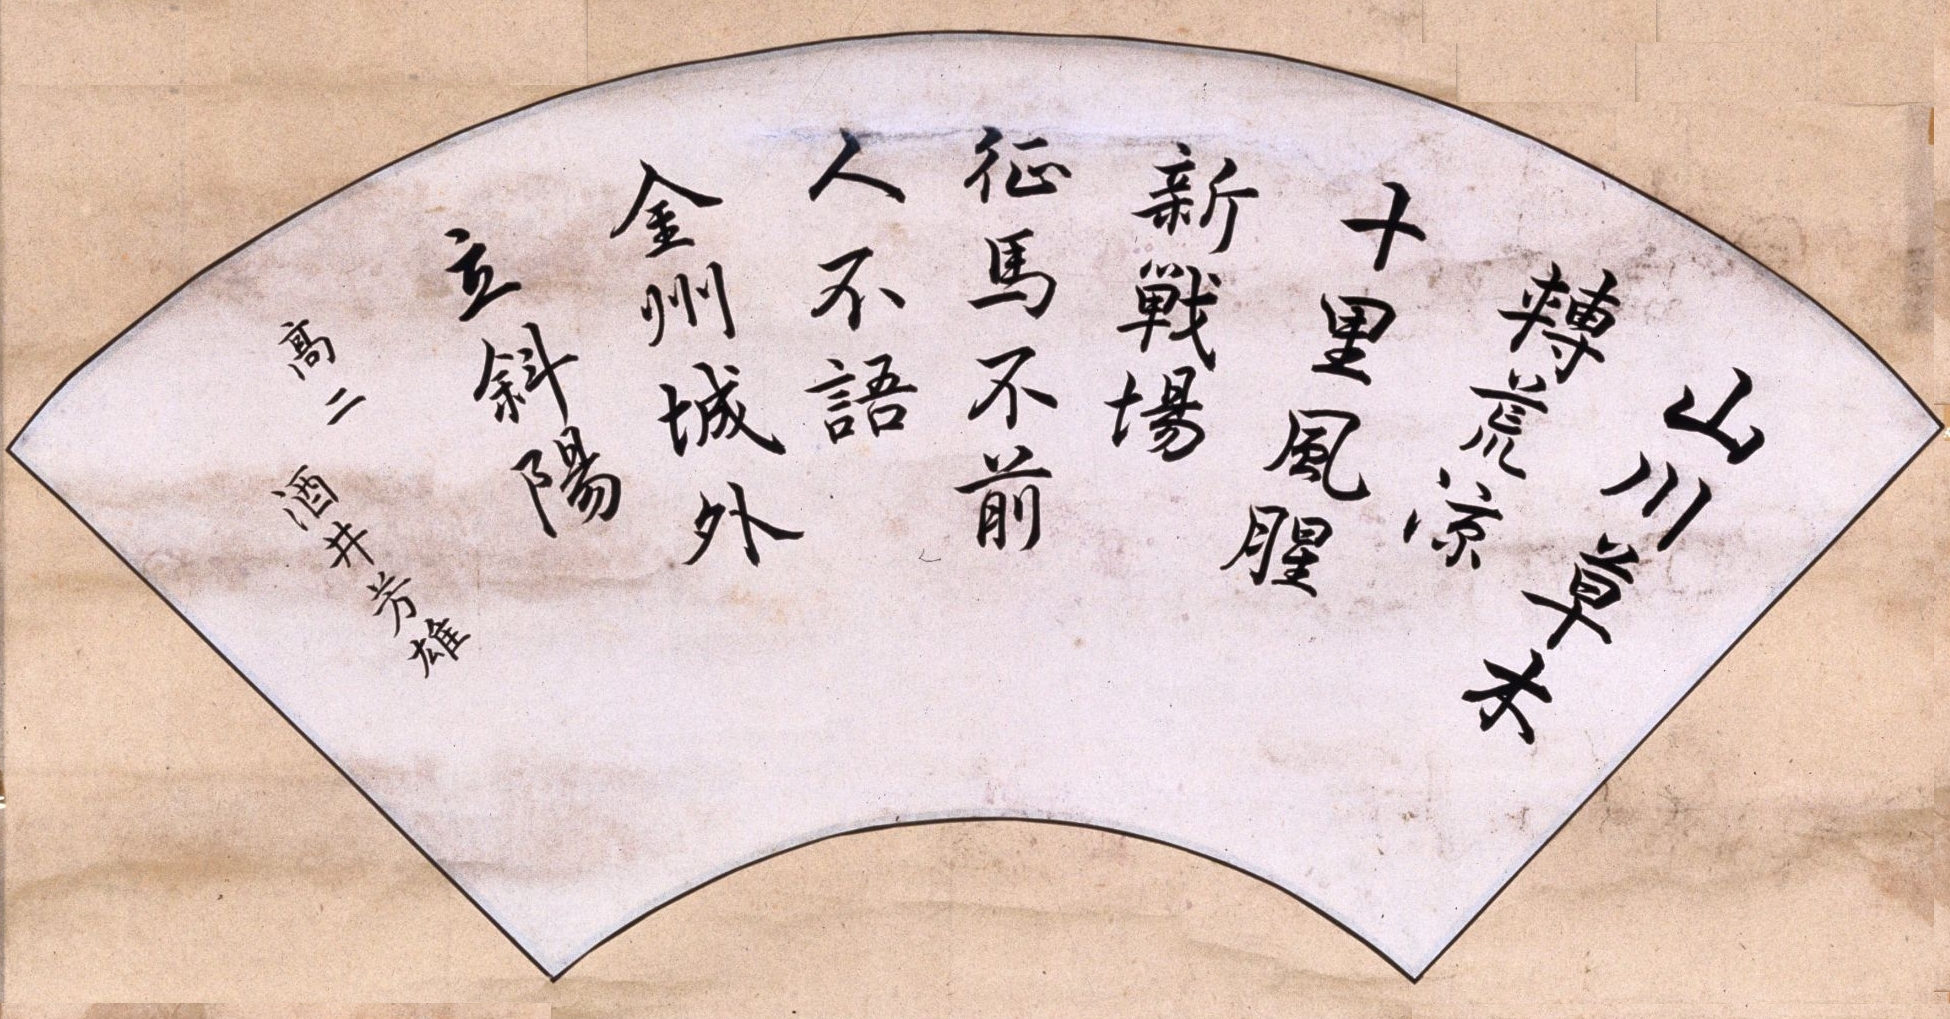 山川草木
轉荒涼
十里風腥
新戦場
征馬不前
人不語
金州城外
立斜陽
高二 酒井芳雄